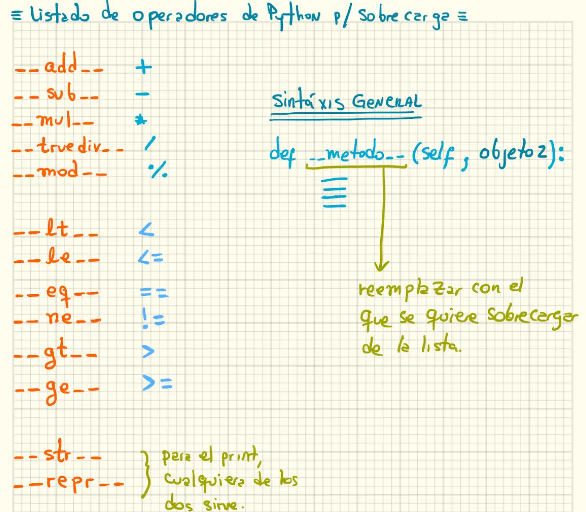 ≡ Listado de operadores de Python p/ sobrecarga ≡
__add__ +
__sub__ -
__mul__ *
__truediv__ /
__mod__ %
__lt__ <
__le__ <=
__eq__ ==
__ne__ !=
__gt__ >
__ge__ >=
__str__
__repr__
para el print,
cualquiera de los
dos sirve.
Sintáxis GENERAL
def __metodo__ (self, objeto2):
reemplazar con el
que se quiere sobrecargar
de la lista.